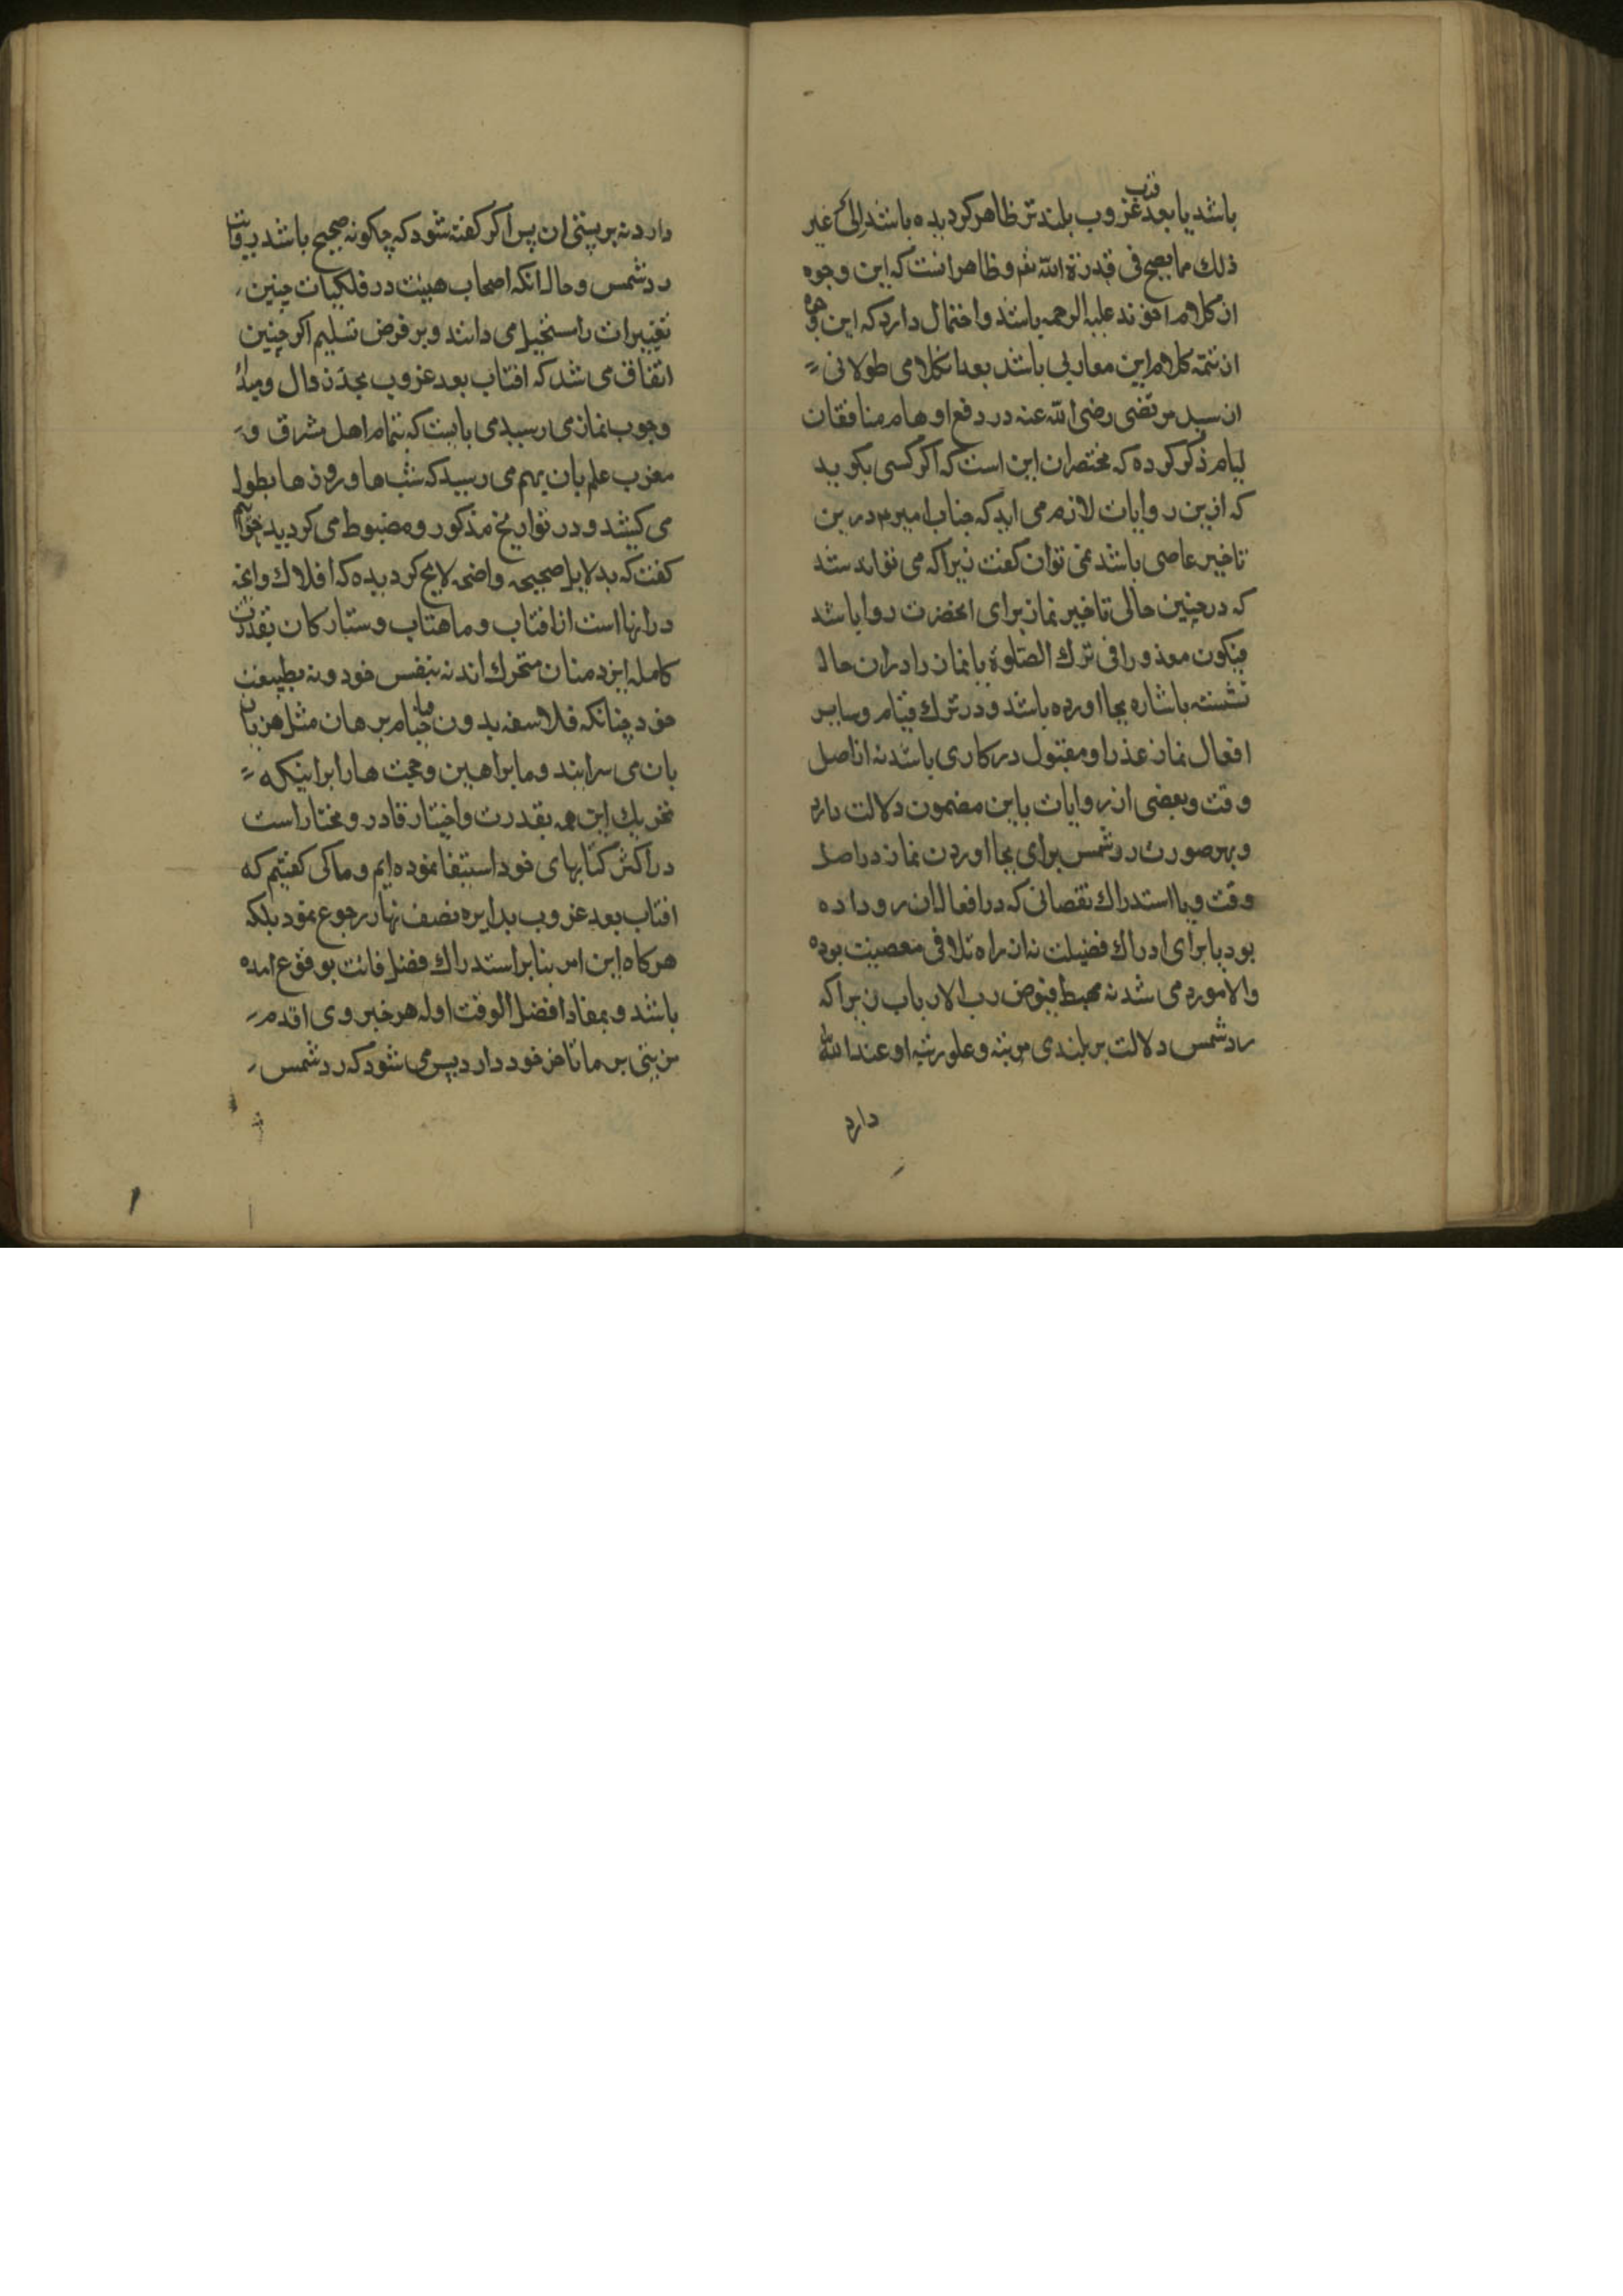 باشد یا بعد قرب غروب بلندتر ظاهر کردیده باشد الی غیر
ذلك مما یصح فی قدرة الله تعم و ظاهر انست که این وجوه
از کلام اخوند علیه الرحمه باشد و احتمال دارد که این وجوه
از تتمه کلام این معاربی باشد بعد انکلامی طولانی
از سید مرتضی رضی الله عنه در دفع اوهام منافقان
لیام ذکر کرده که مختصران این است که اکر کسی بکوید
که ازین روایات لازم می اید که جناب امیر م درین
تاخیر عاصی باشد نمی توان کفت زیرا که می تواند شد
که در چنین حالی تاخیر نماز برای انحضرت روا باشد
فیکون معذورا فی ترك الصلوة یا نماز را دران حال
نشسته باشاره بجا اورده باشد و در ترك قیام و سایر
افعال نماز عذر او مقبول درکاری باشد نه از اصل
وقت و بعضی از روایات باین مضمون دلالت دارد
و بهر صورت رد شمس برای بجا اوردن نماز در اصل
وقت و یا استدراك نقصانی که در افعال ان رو داده
بود یا برای ادراك فضیلت نه از راه تلافی معصیت بوده
والا مورد می شد نه محیط فیوض رب الارباب زیرا که
رد شمس دلالت بر بلندی مرتبه و علو رتبه او عند الله
دارد
دارد نه بر پستی ان پس اکر کفته شود که چکونه صحیح باشد روایت
رد شمس و حال انکه اصحاب هیئت در فلکیات چنین
تغییرات را مستحیل می دانند و بر فرض تسلیم اکر چنین
اتفاق می شد که افتاب بعد غروب بحد زوال و مبدأ
وجوب نماز می رسید می بایست که تمام اهل مشرق و
مغرب علم بان بهم می رسید که شب ها و روز ها بطول
می کشد و در تواریخ مذکور و مضبوط می کردید خواهیم
کفت که بدلایل صحیحه واضحه لایح کردیده که افلاك و انچه
در انها است از افتاب و ماهتاب و ستارکان بقدرت
کامله ایزد منان متحرك اند نه بنفس خود و نه بطبیعت
خود چنانکه فلاسفه بدون قیام برهان مثل هزیان
بان می سرایند و ما براهین و حجت ها را بر اینکه
تحریك این همه بقدرت و اختیار قادر و مختار است
در اکثر کتابهای خود استیفا نموده ایم و ما کی کفتیم که
افتاب بعد غروب بدایره نصف نهار رجوع نمود بلکه
هرکاه این امر بنابر استدراك فضل فائت بوقوع امده
باشد و بمفاد افضل الوقت اوله هر خبر وی اقدم
مزیتی بر ما تاخر خود دارد پس می شود که رد شمس